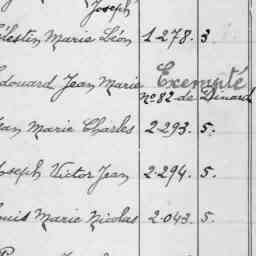 Joseph
élestin Marie Léon 1278. 3
Edouard Jean Marie Exempté
No 82 de Dinard
ean Marie Charles 2293. 5.
Joseph Victor Jean 2294. 5.
ouis Marie Nicolas 2043. 5.